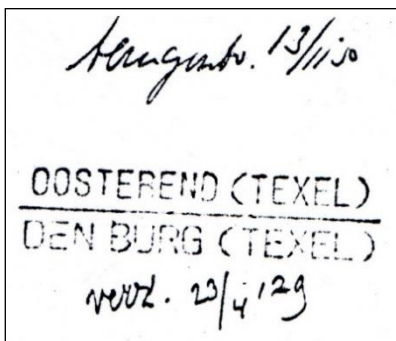 terugontv. 13/11 30
OOSTEREND (TEXEL)
DEN BURG (TEXEL)
verz. 23/4 '29